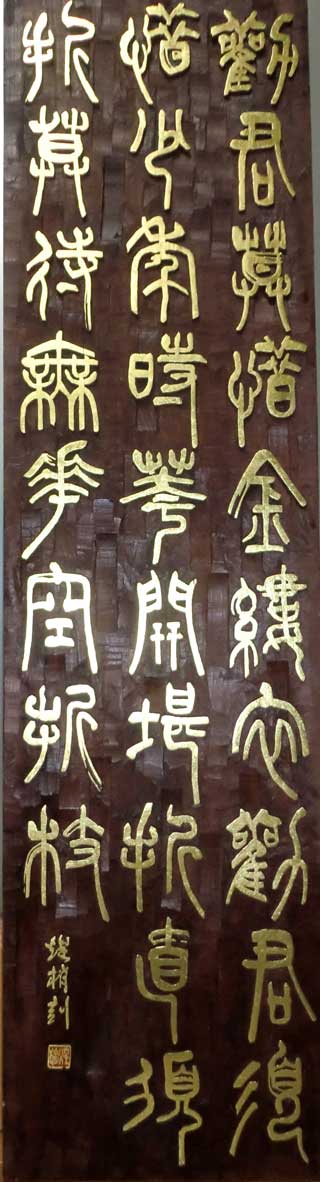 勸君莫惜金縷衣勸君須
惜少年時花開堪折直須
折莫待無花空折枝
刻